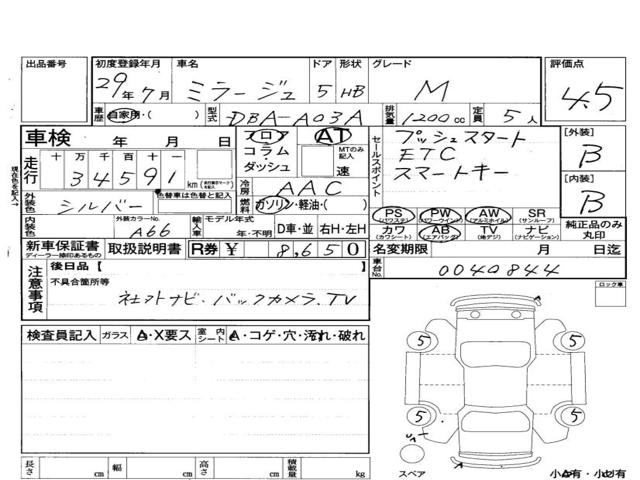 出品番号 初度登録年月 車名 ドア 形状 グレード 評価点
29年7月 ミラージュ 5 HB M 4.5
車歴 自家用・( ) 型式 DBA-A03A 排気量 1200cc 定員 5人
車検 年 月 日 フロア・コラム・ダッシュ AT MTのみ記入 速
セールスポイント プッシュスタート
ETC
スマートキー
[外装] B
[内装] B
現在色を記入→
走行 十 万 千 百 十 一 34591 km
冷房 AAC
外装色 シルバー 色替車は色替と記入 燃料 ガソリン・軽油・( )
内装色 外装カラーNo. A66 輸入車 モデル年式 年・不明 D車・並 右H・左H
PS (パワステ) PW (パワーウインド) AW (アルミホイル) SR (サンルーフ) 純正品のみ丸印
カワ (カワシート) AB (エアバック) TV (地デジ) ナビ (ナビゲーション)
新車保証書 ディーラー捺印あるもの 取扱説明書 R券 ¥ 8,650 名変期限 月 日迄
車台No. 0040844
注意事項 後日品【 】
不具合箇所等
社外ナビ・バックカメラ・TV
ロック車
検査員記入 ガラス A・X要ス 室内シート A・コゲ・穴・汚れ・破れ
5 5
5 5
スペア 小A有・小U有
長さ cm 幅 cm 高さ cm 積載量 kg